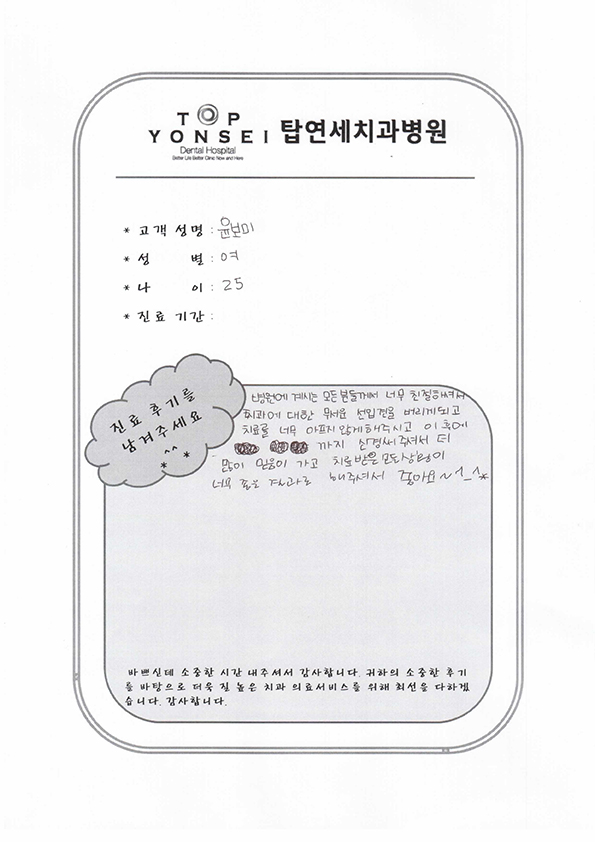 TOP
YONSEI 탑연세치과병원
Dental Hospital
Better Life Better Clinic Now and Here
* 고객 성명 : 윤보미
* 성 별 : 여
* 나 이 : 25
* 진료 기간 :
진료 후기를
남겨주세요
^^
* *
병원에 계시는 모든분들께서 너무 친절하셔서
치과에 대한 무서운 선입견을 버리게되고
치료를 너무 아프지 않게해주시고 이 후에
까지 신경써주셔서 더
많이 믿음이 가고 치료받은 모든
너무 좋은 결과로 해주셔서 좋아요~^_^*
바쁘신데 소중한 시간 내주셔서 감사합니다. 귀하의 소중한 후기
를 바탕으로 더욱 질 높은 치과 의료서비스를 위해 최선을 다하겠
습니다. 감사합니다.